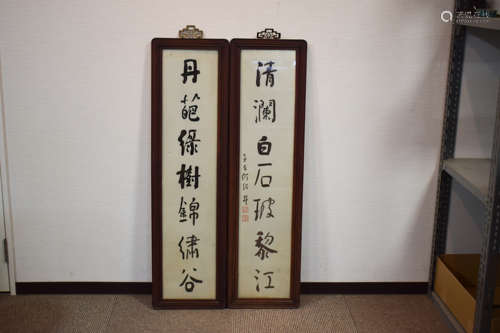 清瀾白石玻黎江
丹葩綠樹錦繡谷